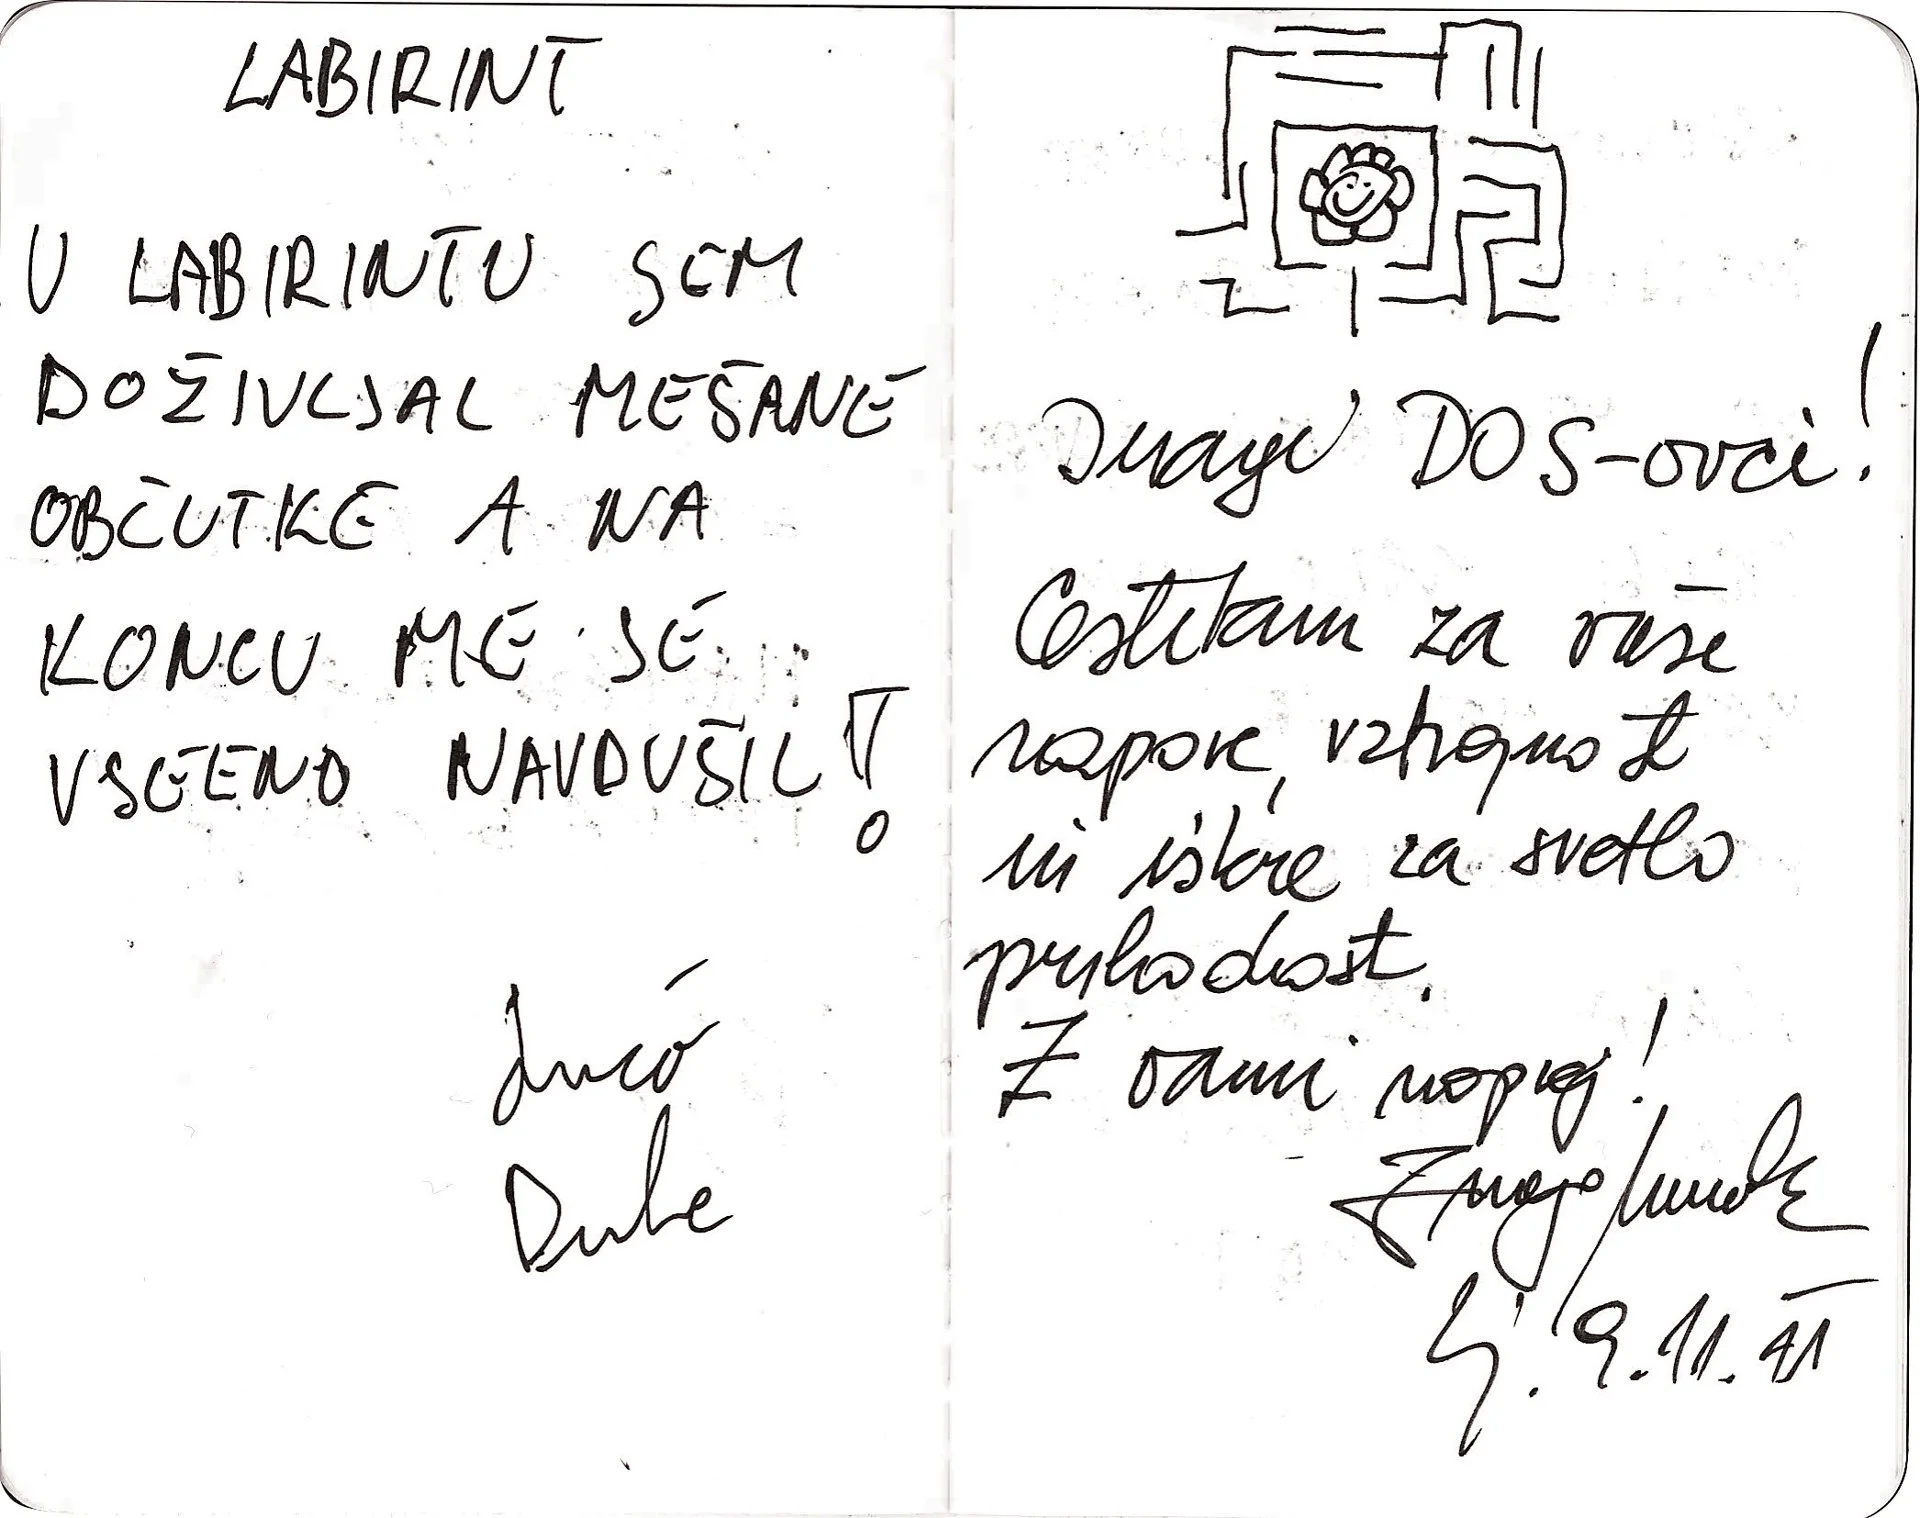 LABIRINT
U LABIRINTU SEM
DOŽIVLJAL MEŠANE
OBČUTKE A NA
KONCU ME JE
VSEENO NAVDUŠIL!
Dragi DOS-ovci!
Čestitam za vaše
napore, vztrajnost
in iskre za svetlo
prihodnost.
Z vami naprej!
Lj. 9.11.11